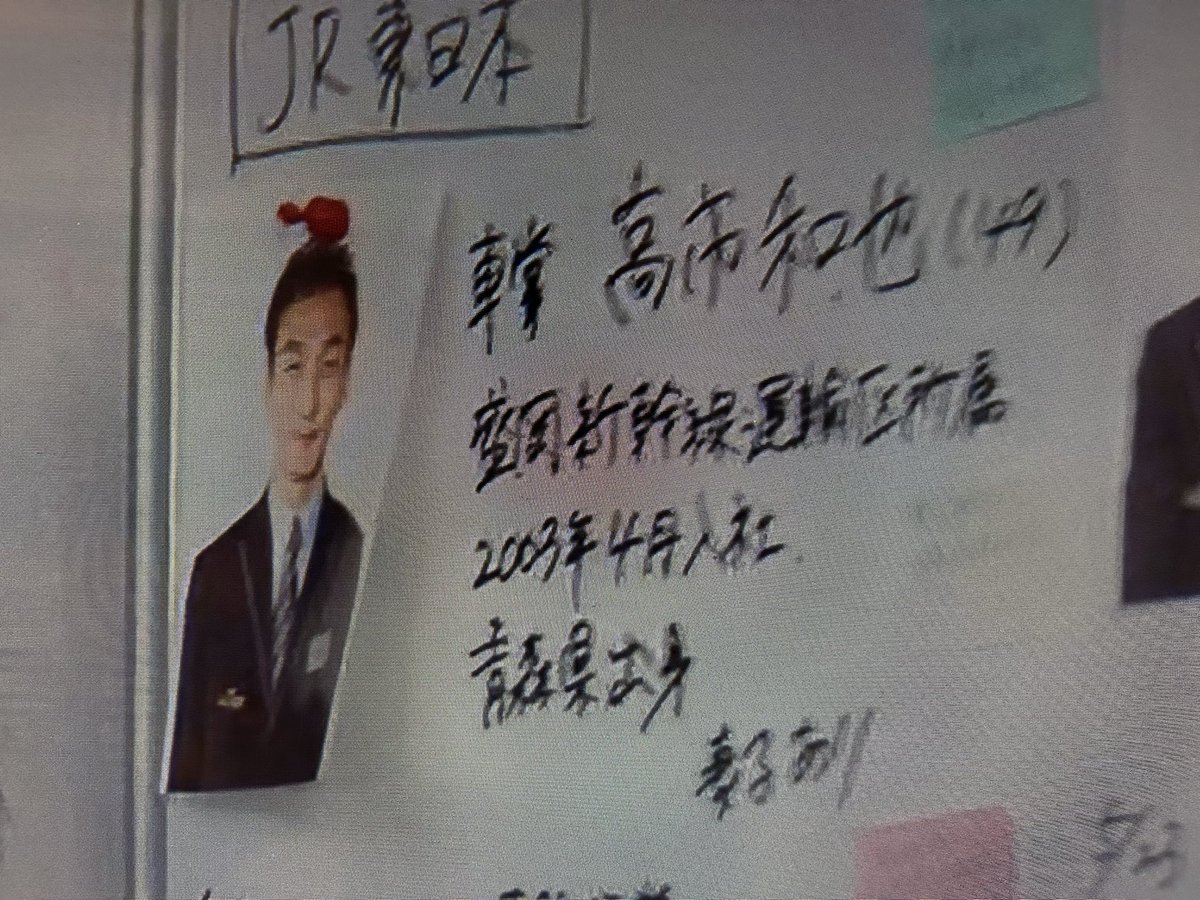 JR東日本
車掌 高市和也(49)
盛岡新幹線運輸区所属
2003年4月入社
青森県出身